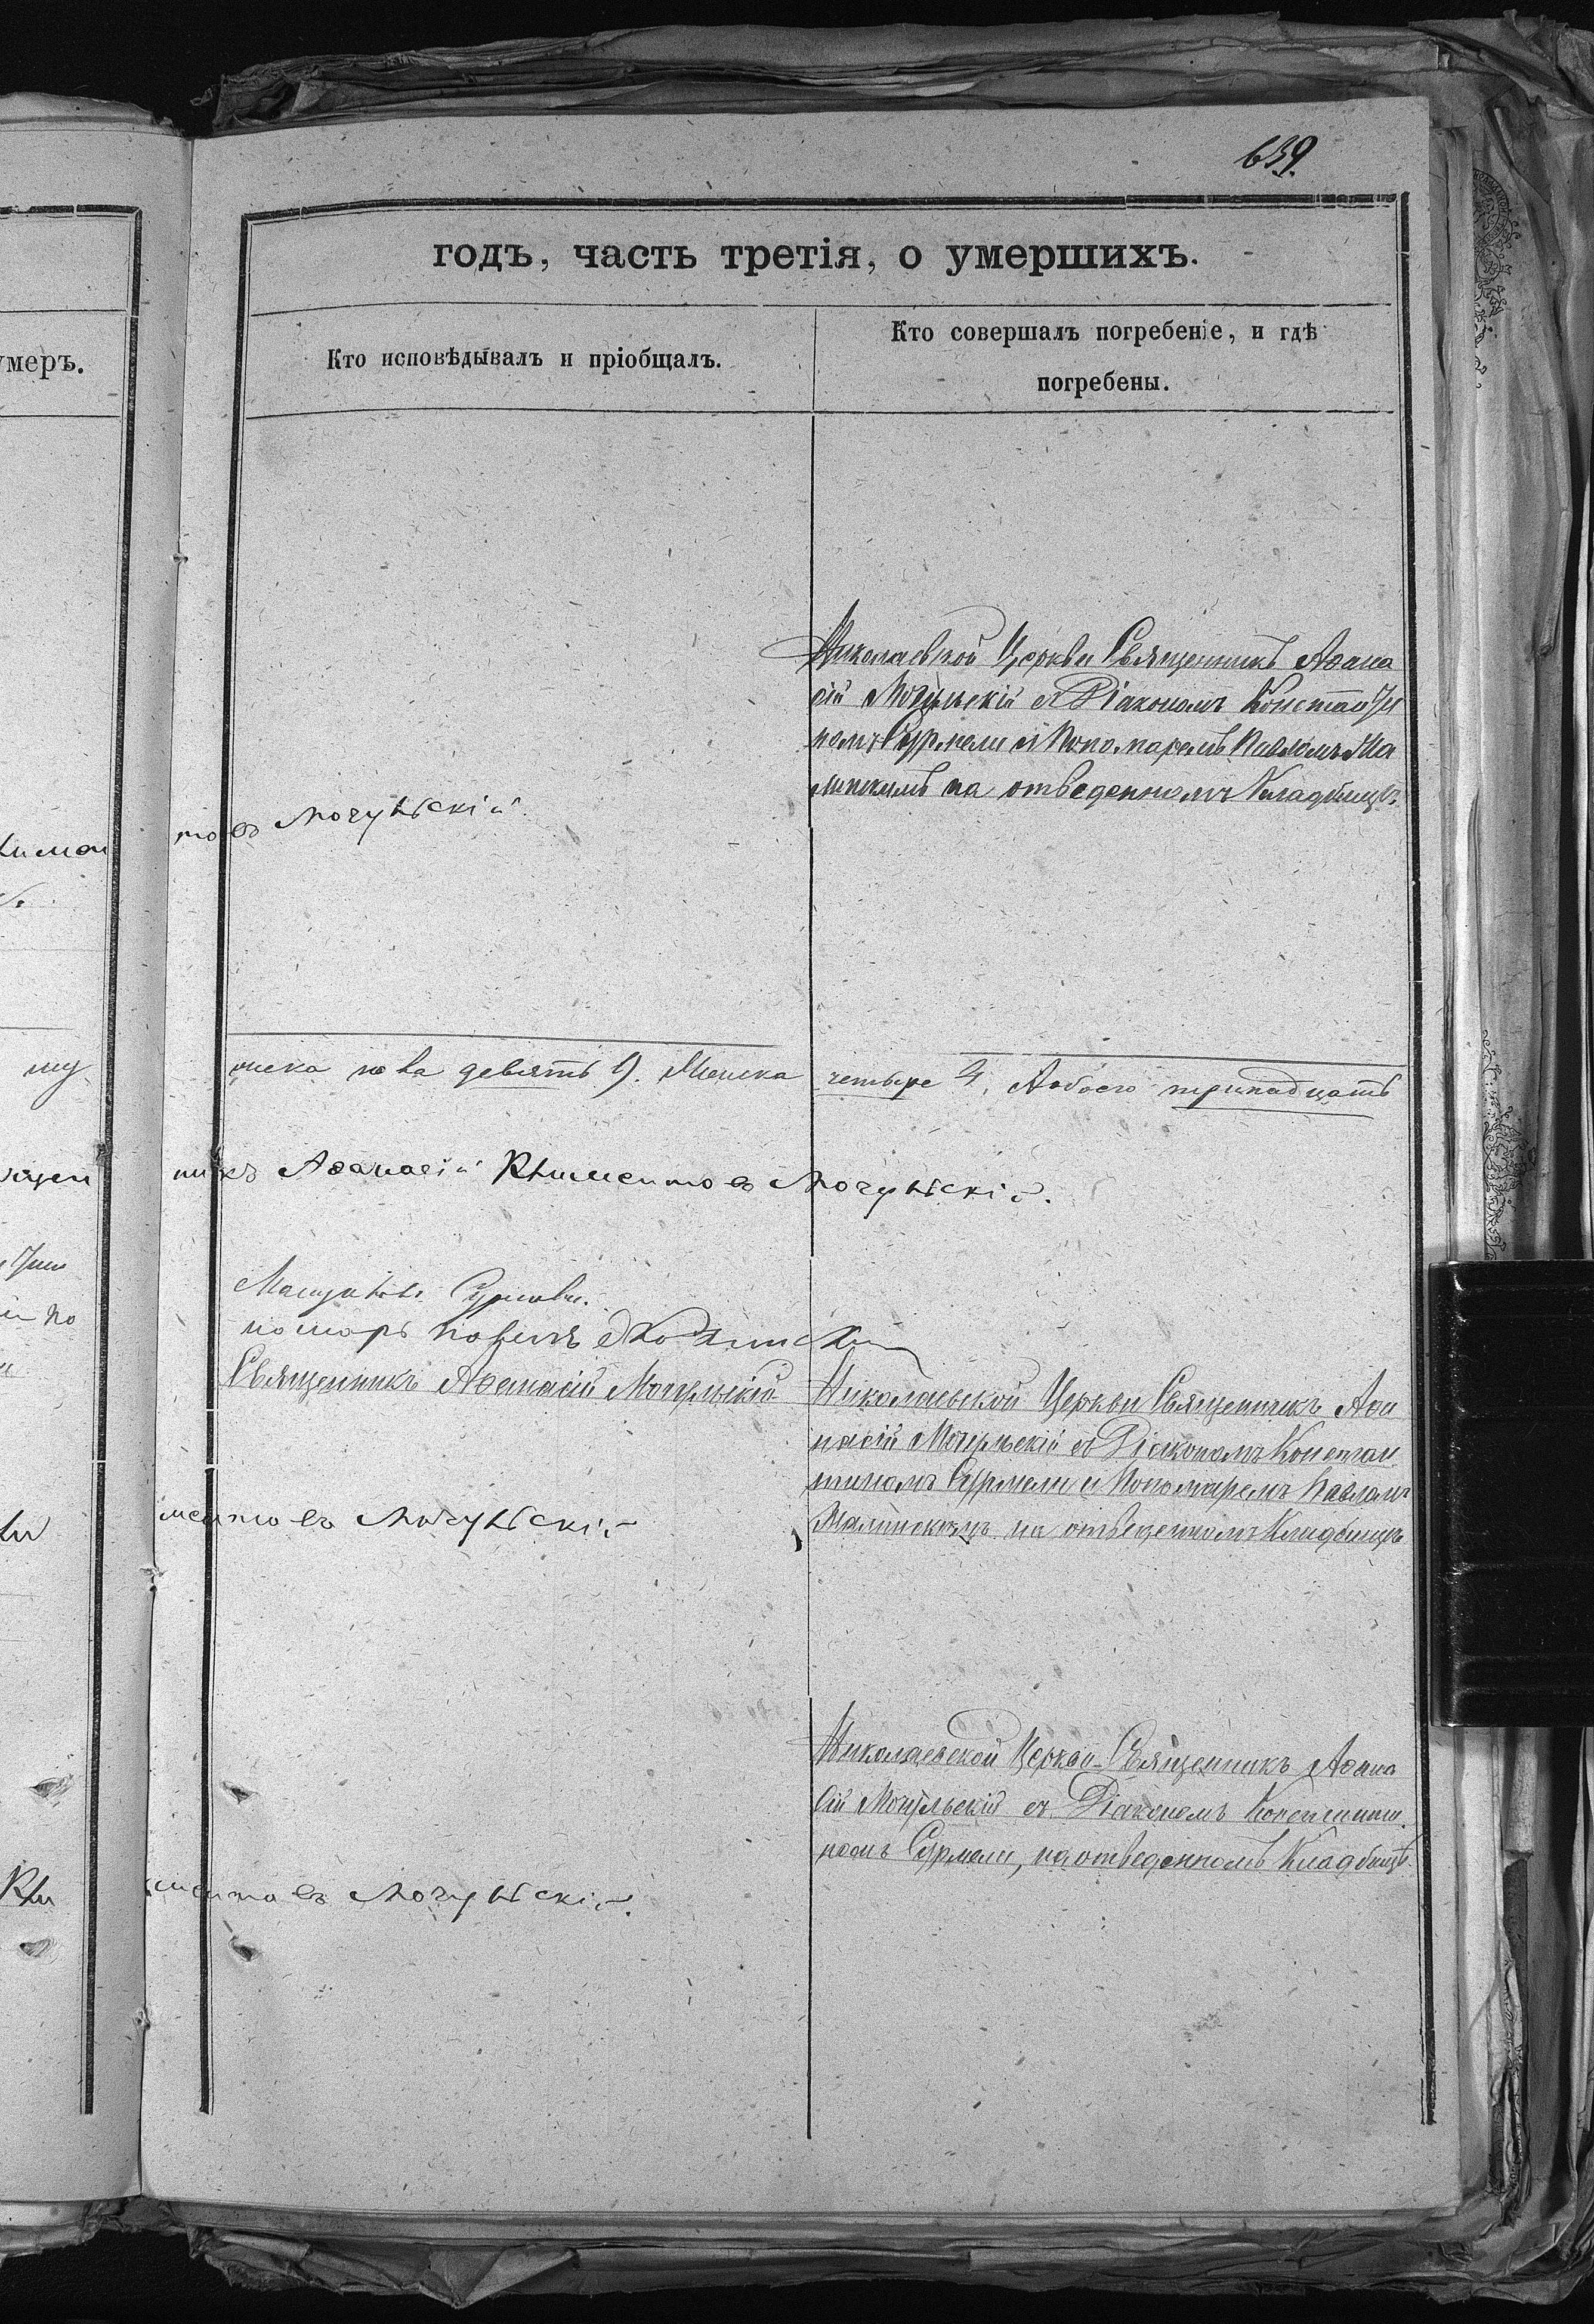 639.
годъ, часть третія, о умершихъ.
умеръ.
Кто исповѣдывалъ и пріобщалъ.
Кто совершалъ погребеніе, и гдѣ
погребены.
Церкви Священникъ Аѳана
сій Могульскій съ Діакономъ Константи
номъ Сурмели и Пономаремъ Павломъ Ма
линскимъ на отведенномъ Кладбищѣ.
товъ Могульскій
девять 9. Женска четыре 4. Обоего тринадцать
никъ Аѳанасій Климентовъ Могульскій.
Священникъ Аѳанасій Могульскій
Николаевской Церкви Священникъ Аѳа
насій Могульскій съ Діакономъ Констан
тиномъ Сурмели и Пономаремъ Павломъ
Малинскимъ на отведенномъ Кладбищѣ
ментовъ Могульскій
Николаевской Церкви Священникъ Аѳана
сій Могульскій съ Діакономъ Константи
номъ Сурмели, на отведенномъ Кладбищѣ.
Кли
ментовъ Могульскій.